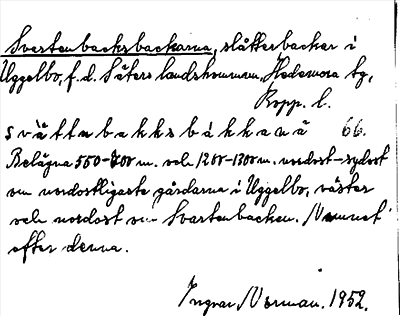 Svartenbacksbackarna, slåtterbackar i
Uggelbo, f.d. Säters landskommun, Hedemora tg,
Kopp. l.
svättnbakksbákkanä 66.
Belägna 550-700 m. och 1200-1300 m. nordost-sydost
om nordostligaste gårdarna i Uggelbo, väster
och nordost om Svartenbacken. Namnet
efter denna.
Ingvar Norman. 1952.